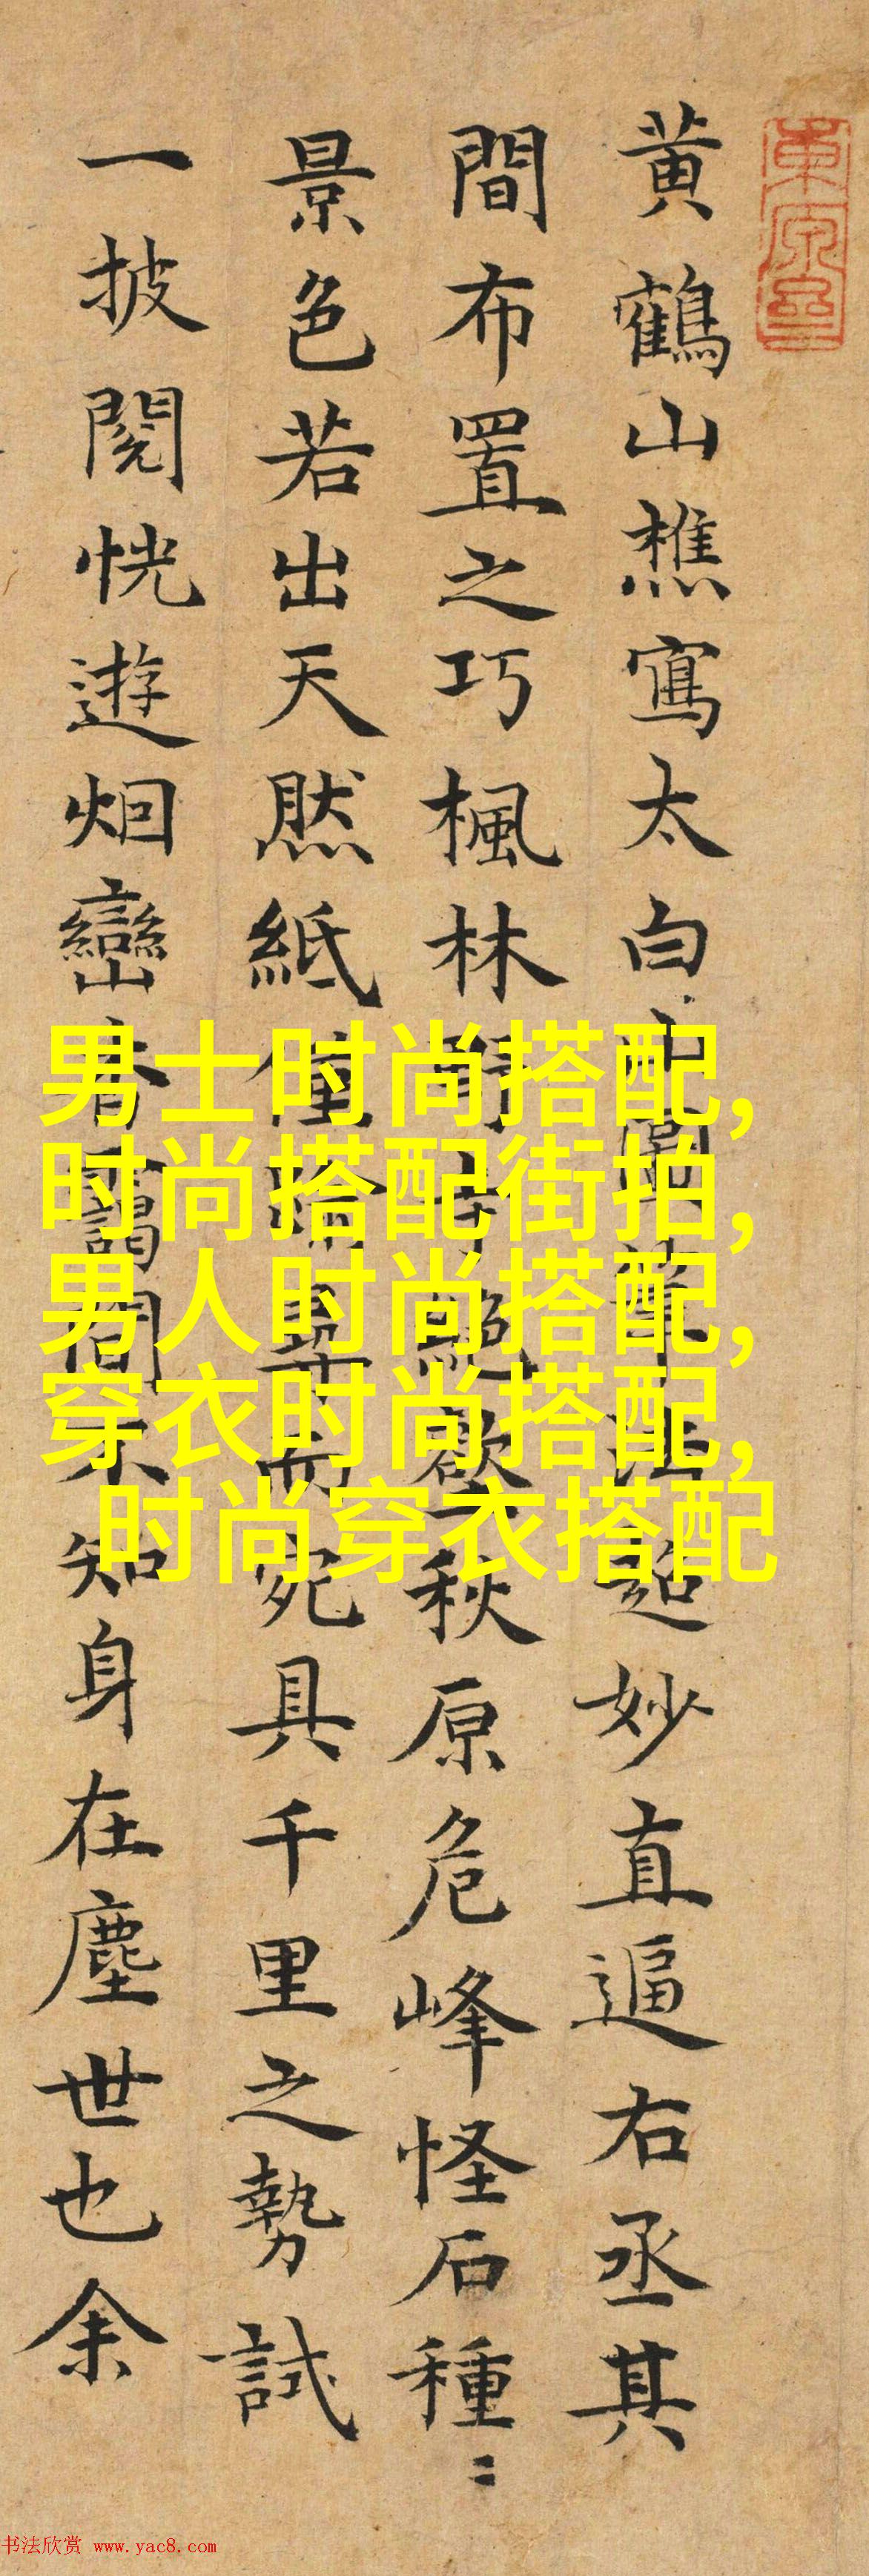 黄鶴山樵寫太白山圖筆法超妙直逼右丞其
間布置之巧楓林絕壑秋原危峰怪石種〻
景色若出天然紙僅踰尋而宛具千里之勢試
一披閱恍遊烟巒杳靄間不知身在塵世也余
男士时尚搭配,
时尚搭配街拍,
男人时尚搭配,
穿衣时尚搭配,
时尚穿衣搭配
书法欣赏 www.yac8.com